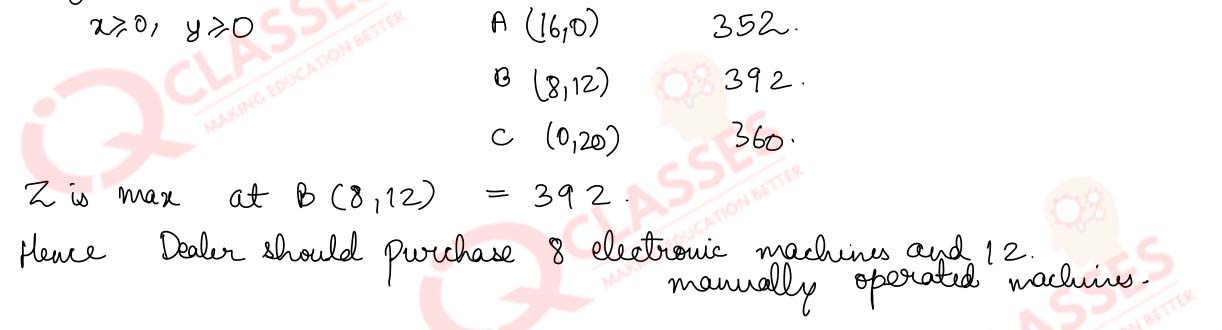 x≥0, y≥0
A (16,0) 352.
B (8,12) 392.
C (0,20) 360.
Z is max at B (8,12) = 392.
Hence Dealer should purchase 8 electronic machines and 12.
manually operated machines.
IQ CLASSES
MAKING EDUCATION BETTER
IQ CLASSES
MAKING EDUCATION BETTER